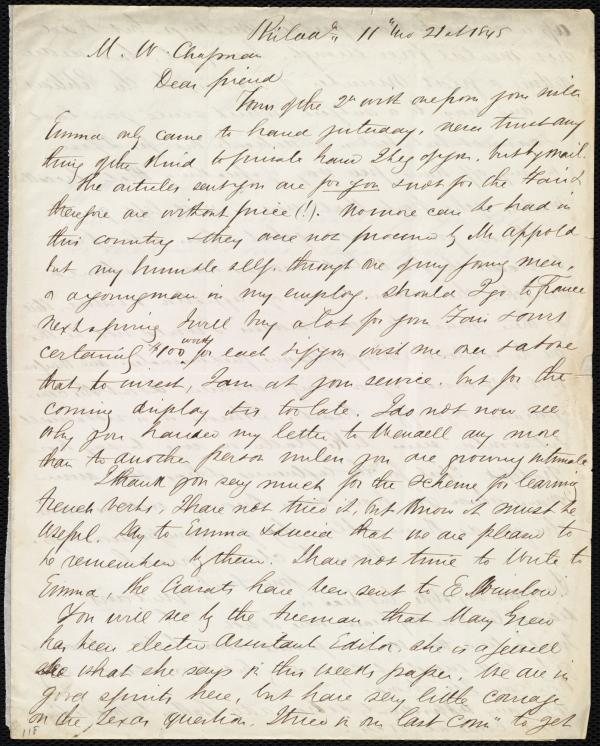 Philad'a, 11 "mo 21st 1845
M. W. Chapman
Dear friend
Yours of the 2" with one from your sister
Emma only came to hand yesterday, never trust any
thing of the kind to private hand I beg of you, but by mail.
The articles sent you are for you & not for the Fair &
therefore are without price (!). No more can be had in
this country & they were not procured by Mr Appold
but my humble self, through one of my young men,
or a young man in my employ. Should I go to France
next spring I will buy a lot for your Fair & ours
certainly $100 worth for each & if you wish me over & above
that, to invest, I am at your service, but for the
coming display it is too late. I do not now see
why you handed my letter to Wendell any more
than to another person unless you are growing intimate
I thank you very much for the scheme for learning
french verbs. I have not tried it, but know it must be
useful. Say to Emma & Lucia that we are pleased to
be remembered by them. I have not time to write to
Emma, the Cravats have been sent to E. Winslow.
You will see by the freeman that Mary Grew
has been elected Assistant Editor, she is a jewell
see what she says in this weeks paper. We are in
good spirits here, but have very little courage
on the Texas question. I tried in our last Com" to get
118